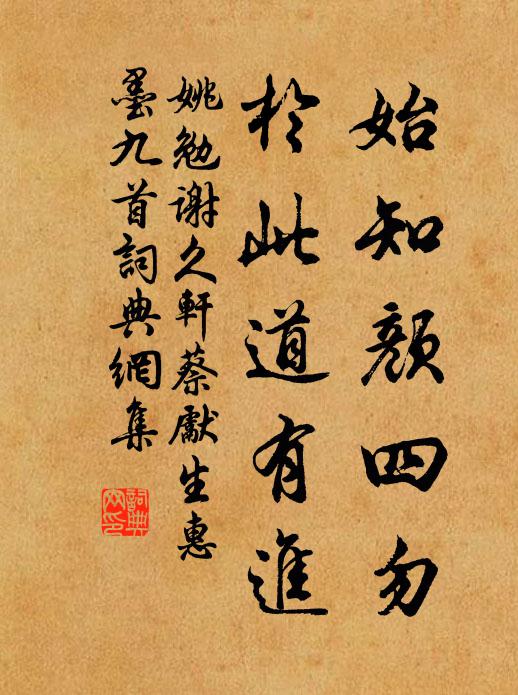 始知颜四勿
於此道有進
姚勉谢久軒蔡獻生惠
墨九首詞典網集
詞典
网印